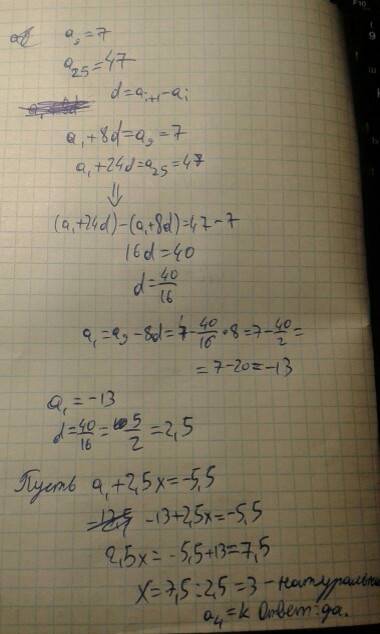 a₉=7
a₂₅=47
d=aᵢ₊₁-aᵢ
a₁+8d=a₉=7
a₁+24d=a₂₅=47
⇓
(a₁+24d)-(a₁+8d)=47-7
16d=40
d=40/16
a₁=a₉-8d=7-40/16*8=7-40/2=
=7-20=-13
a₁=-13
d=40/16=5/2=2,5
Пусть a₁+2,5x=-5,5
-13+2,5x=-5,5
2,5x=-5,5+13=7,5
x=7,5:2,5=3-натурально
a₄=k Ответ:да.